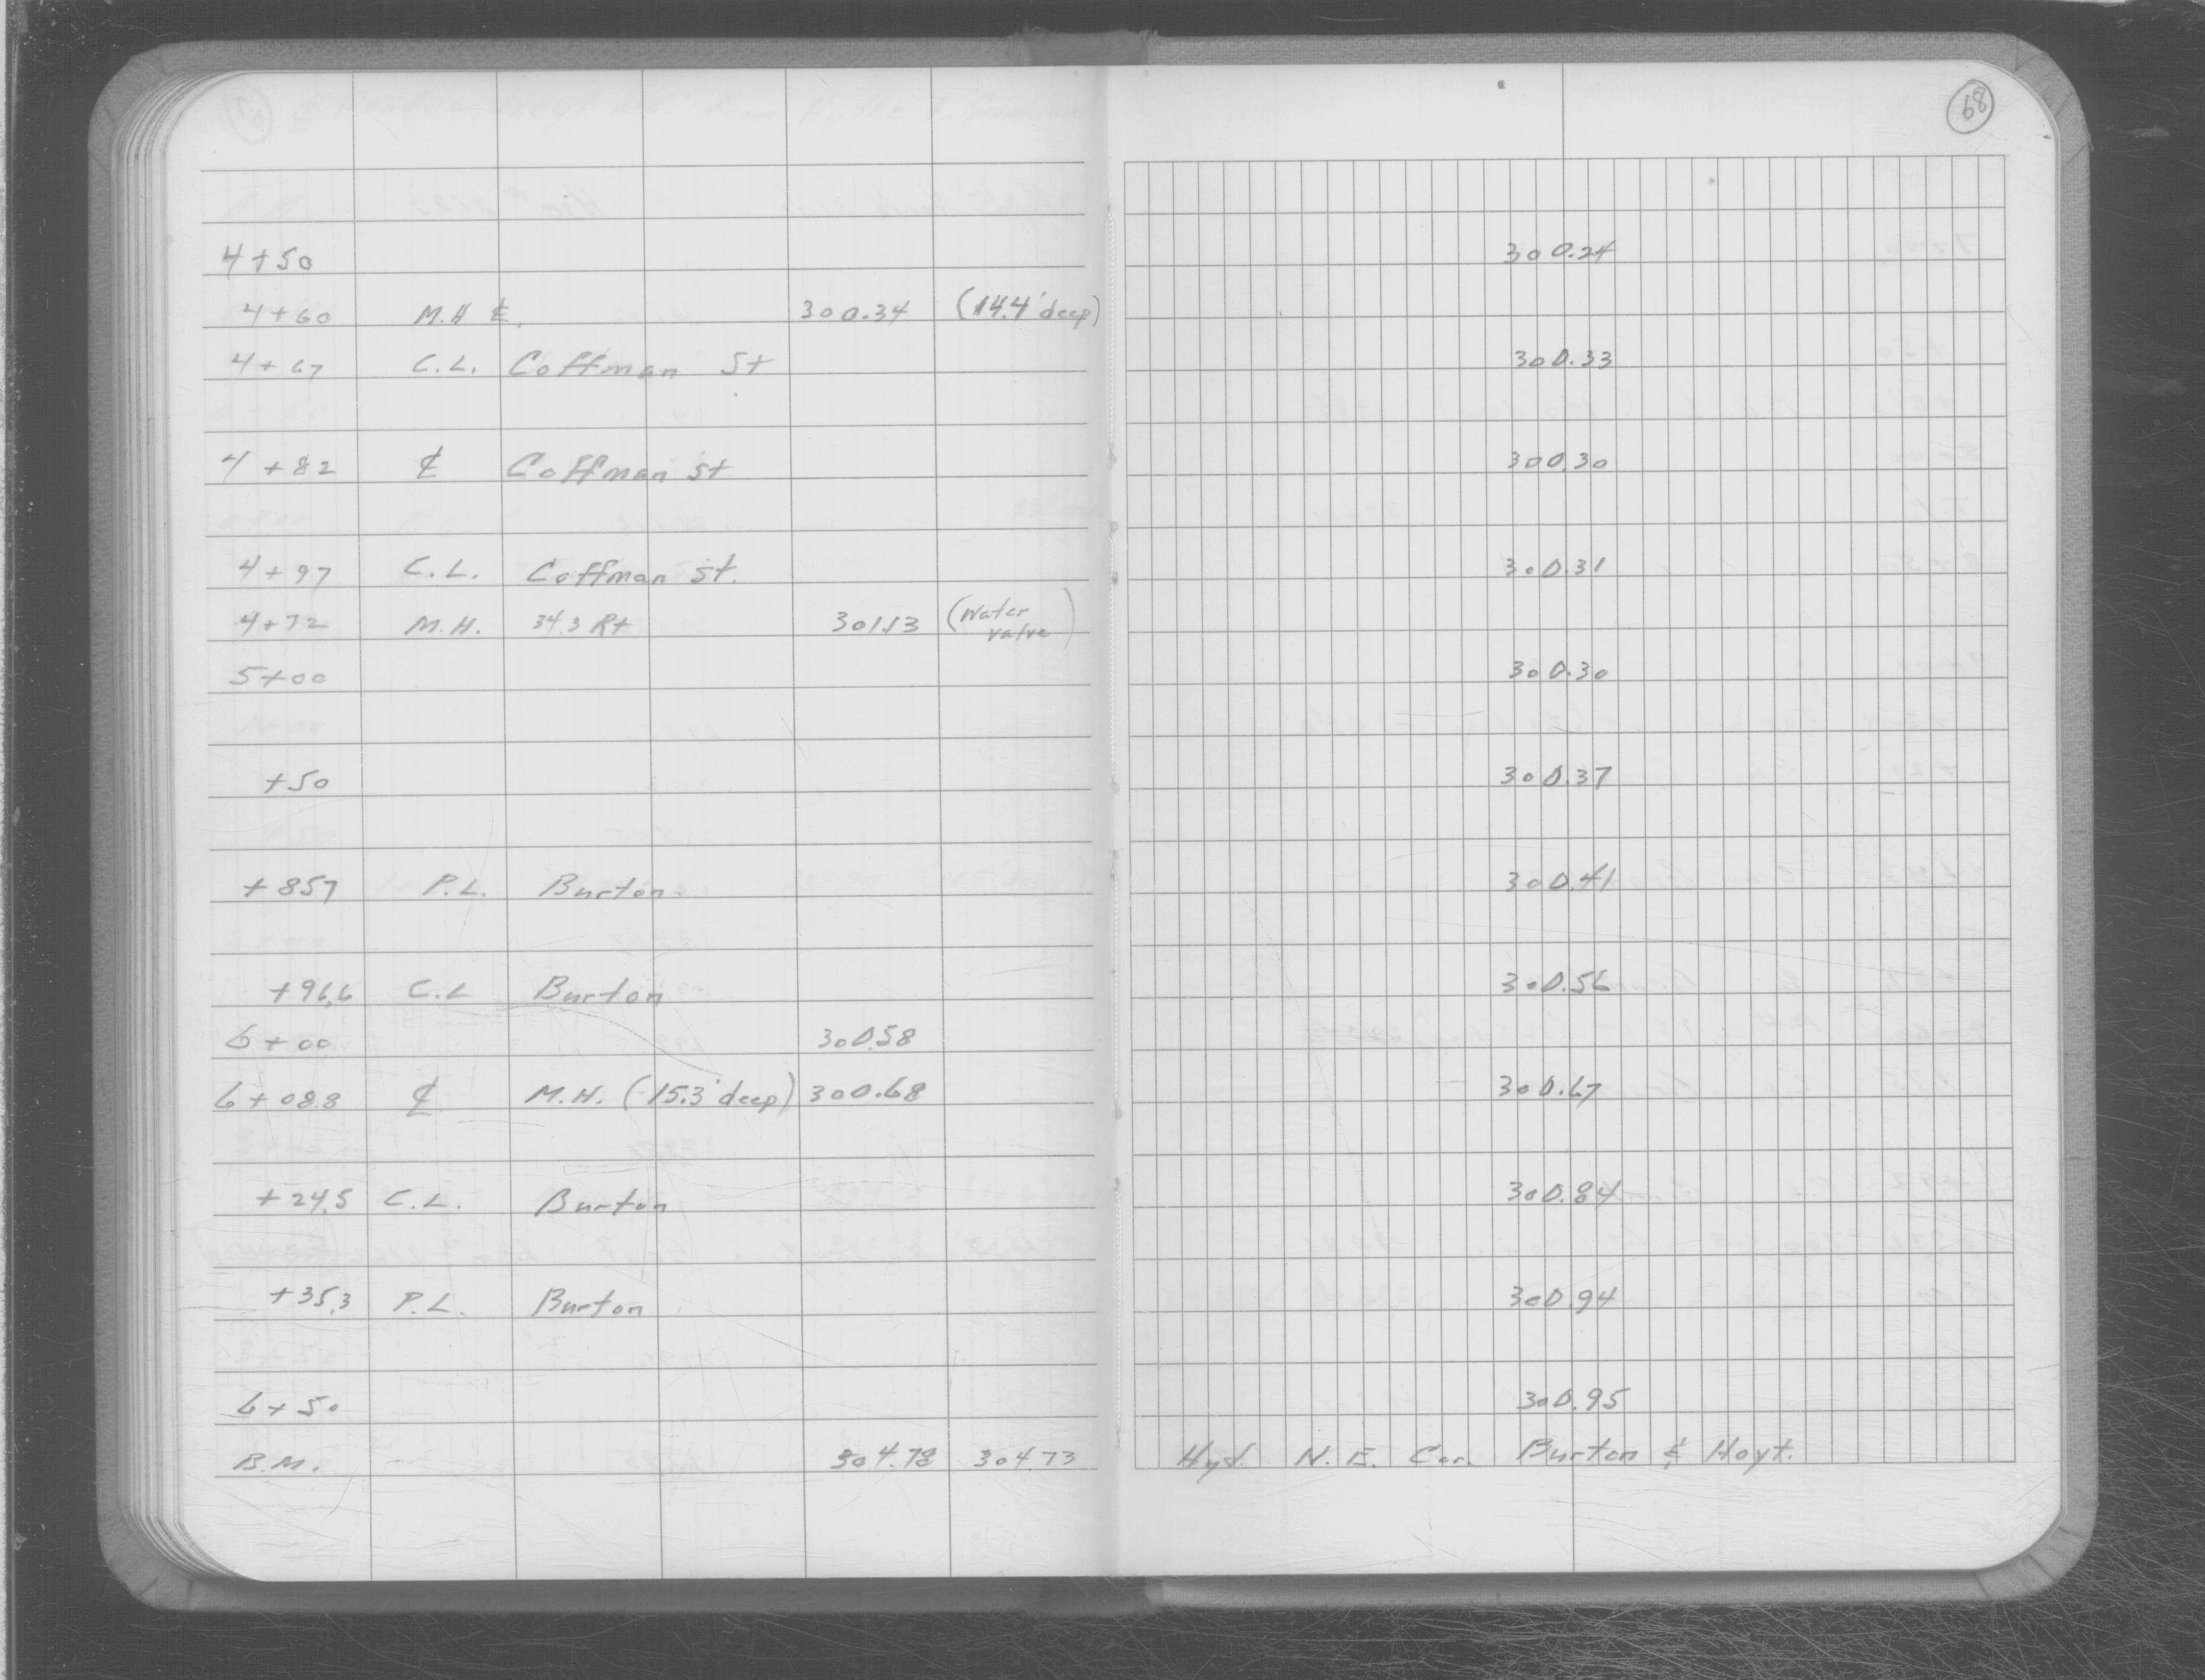 68
4+50 300.24
4+60 M.H ℄. 300.34 (14.4' deep)
4+67 C.L. Coffman St 300.33
4+82 ℄ Coffman St 300.30
4+97 C.L. Coffman St. 300.31
4+72 M.H. 34.3 Rt 301.13 (Water
valve)
5+00 300.30
+50 300.37
+857 P.L. Burton. 300.41
+96.6 C.L Burton 300.56
6+00 300.58
6+08.8 ℄ M.H. (15.3' deep) 300.68 300.67
+24.5 C.L. Burton 300.84
+35.3 P.L. Burton 300.94
6+50 300.95
B.M. 304.78 304.73 Hyd. N.E. Cor. Burton & Hoyt.